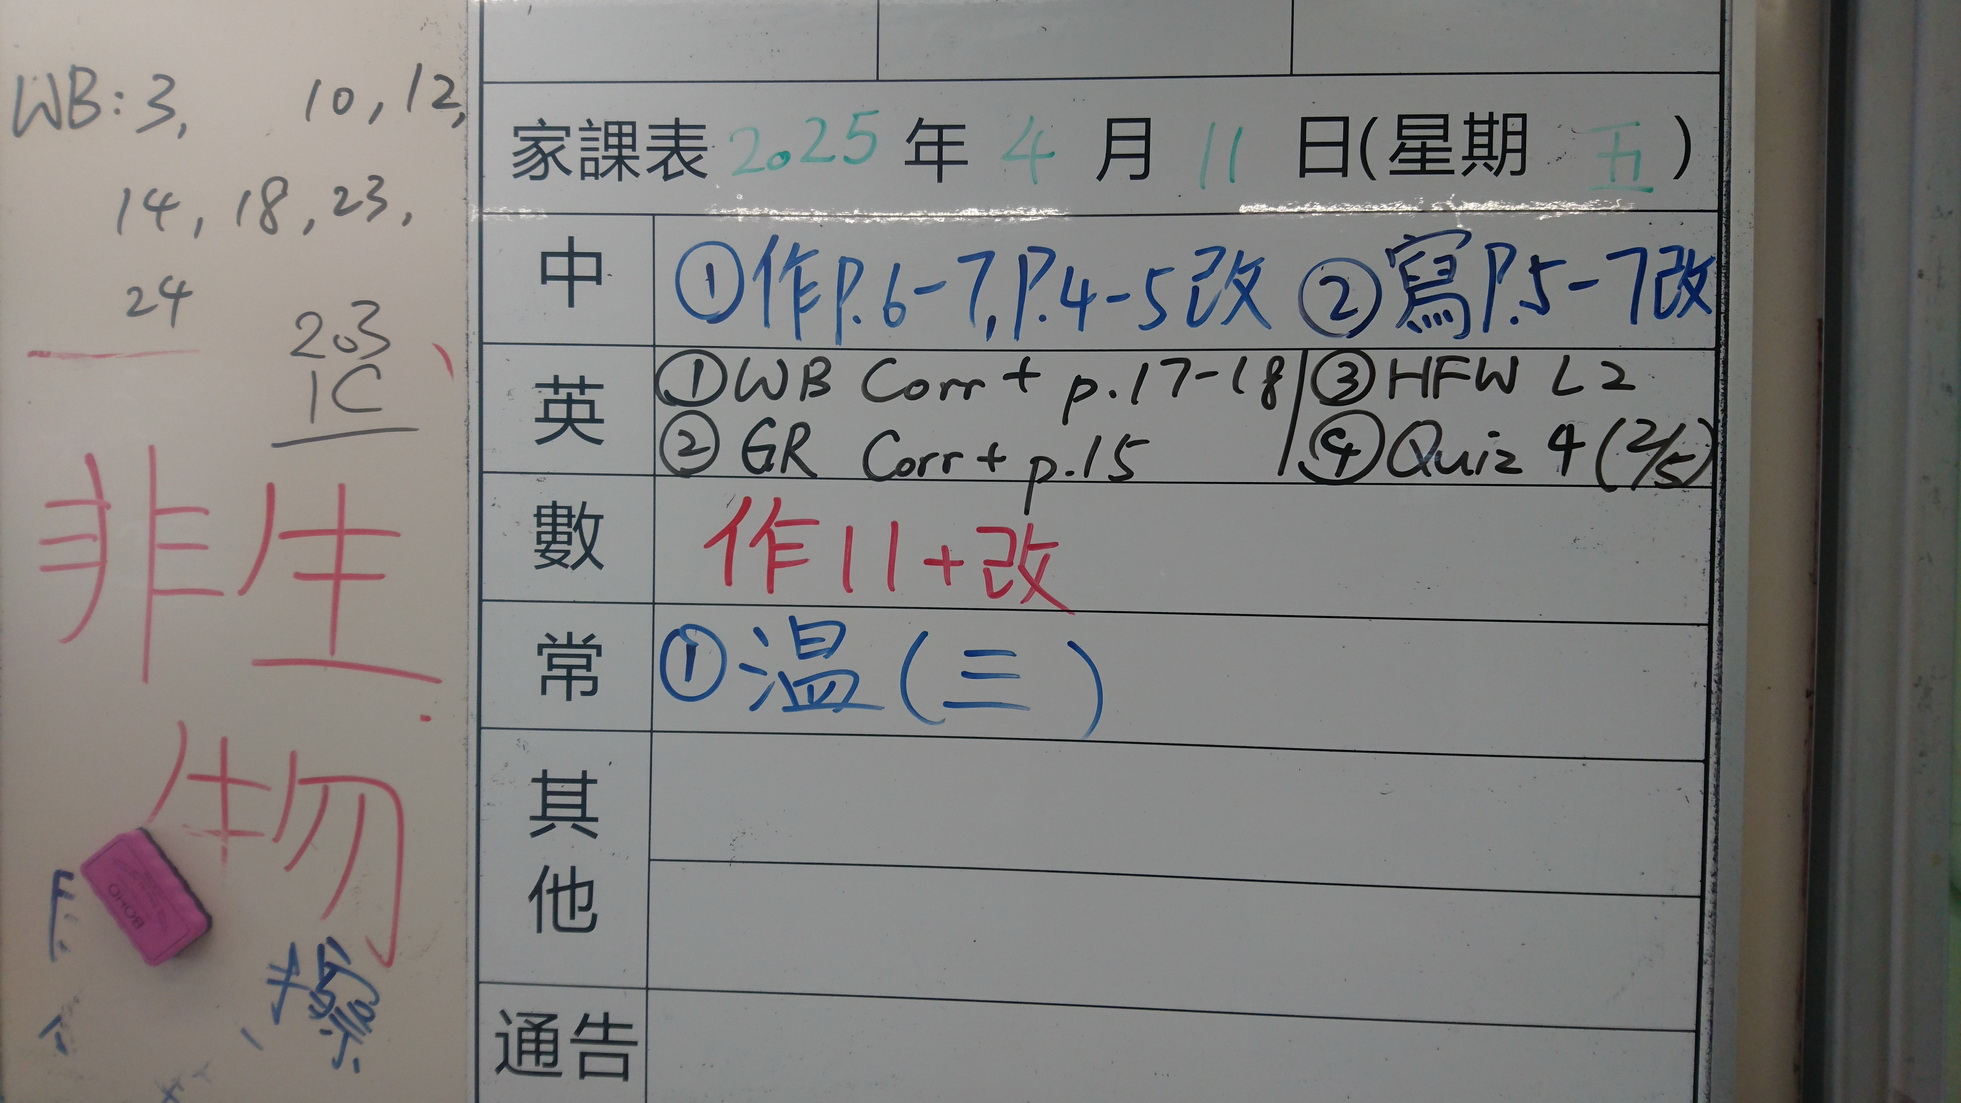 WB: 3, 10, 12,
14, 18, 23,
24
2.3
1C
非生
物
擦
BOHO
家課表 2025 年 4 月 11 日(星期 五)
中
①作P.6-7,P.4-5改 ②寫P.5-7改
英
①WB Corr + p.17-18
②GR Corr + p.15
③HFW L2
④Quiz 4 (2/5)
數
作11+改
常
①温(三)
其他
通告